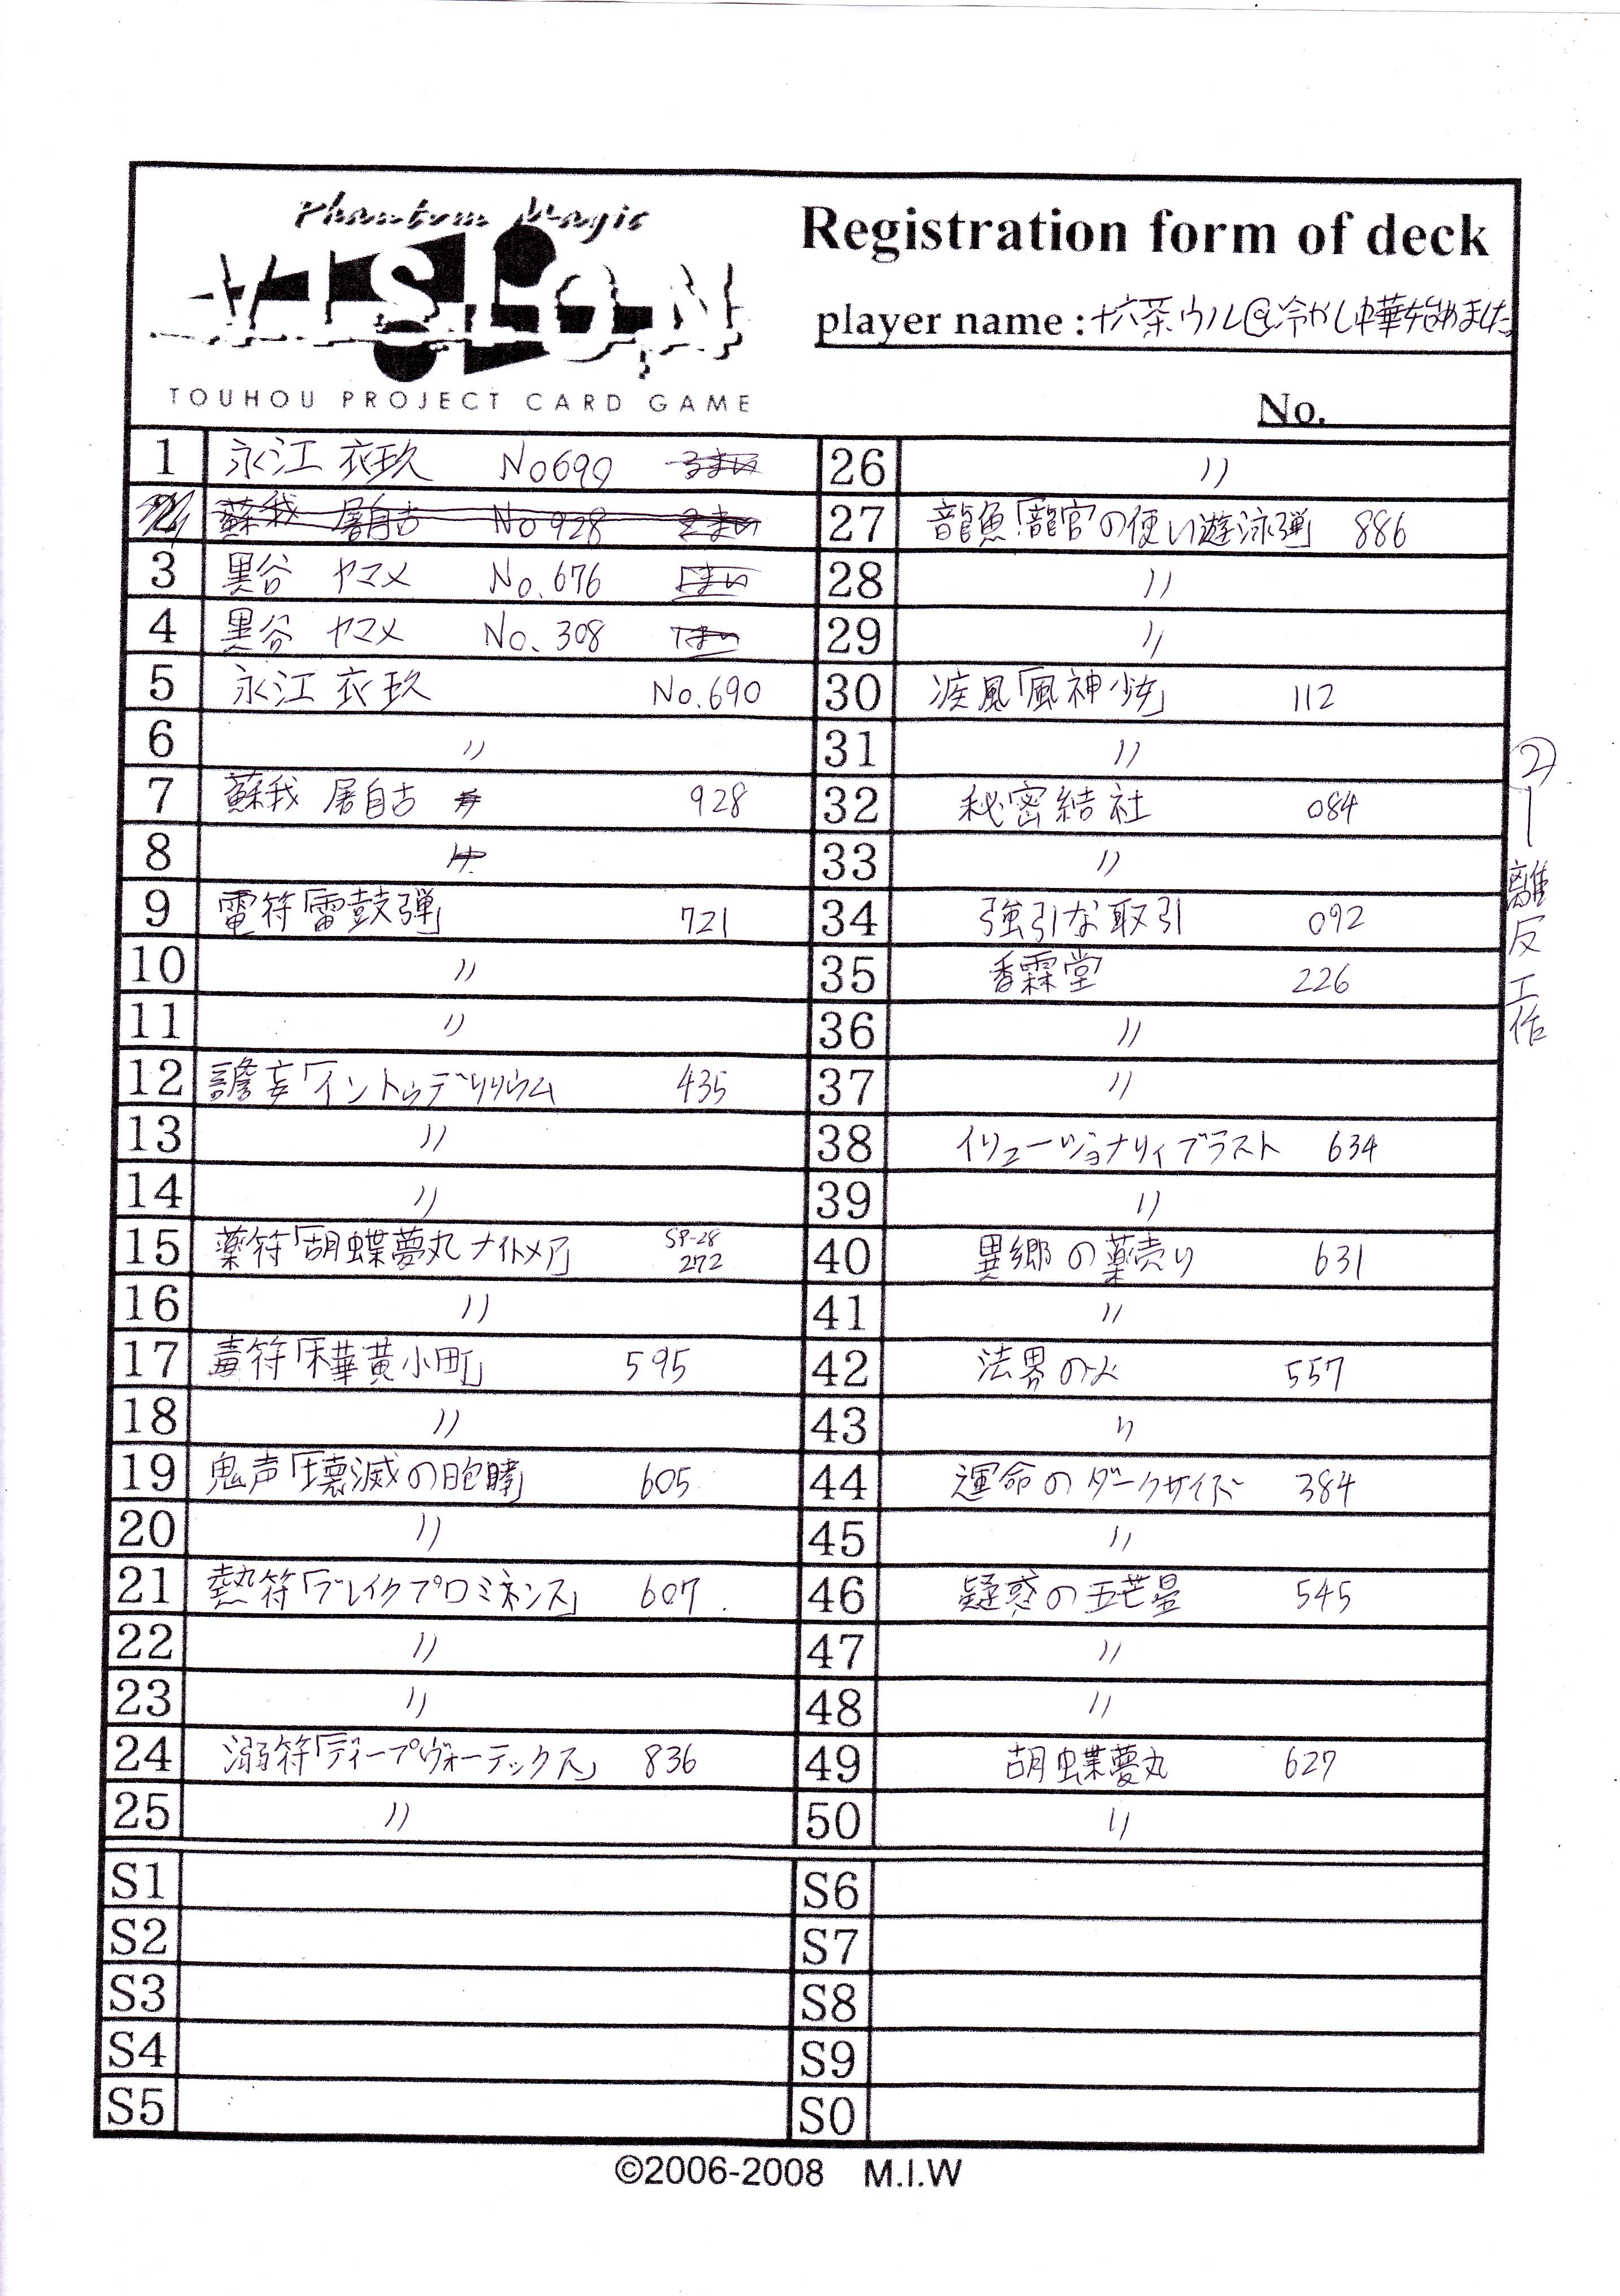 Phantom Magic
VISION
TOUHOU PROJECT CARD GAME
Registration form of deck
player name : 十六茶ウル@冷やし中華始めました
No.
1 永江 衣玖 No690
2 蘇我 屠自古 No928
3 黒谷 ヤマメ No.676
4 黒谷 ヤマメ No.308
5 永江 衣玖 No.690
6 〃
7 蘇我 屠自古 928
8
9 電符「雷鼓弾」 721
10 〃
11 〃
12 譫妄「イントゥデリリウム 435
13 〃
14 〃
15 薬符「胡蝶夢丸ナイトメア」 SP-28 272
16 〃
17 毒符「樺黄小町」 595
18 〃
19 鬼声「壊滅の咆哮」 605
20 〃
21 熱符「ブレイクプロミネンス」 607
22 〃
23 〃
24 溺符「ディープヴォーテックス」 836
25 〃
26 〃
27 龍魚「龍宮の使い遊泳弾」 886
28 〃
29 〃
30 疾風「風神少女」 112
31 〃
32 秘密結社 084
33 〃
34 強引な取引 092
35 香霖堂 226
36 〃
37 〃
38 イリュージョナリィブラスト 634
39 〃
40 異郷の薬売り 631
41 〃
42 法界の火 557
43 〃
44 運命のダークサイド 384
45 〃
46 疑惑の五芒星 545
47 〃
48 〃
49 胡蝶夢丸 627
50 〃
②ー離反工作
S1
S2
S3
S4
S5
S6
S7
S8
S9
S0
©2006-2008 M.I.W